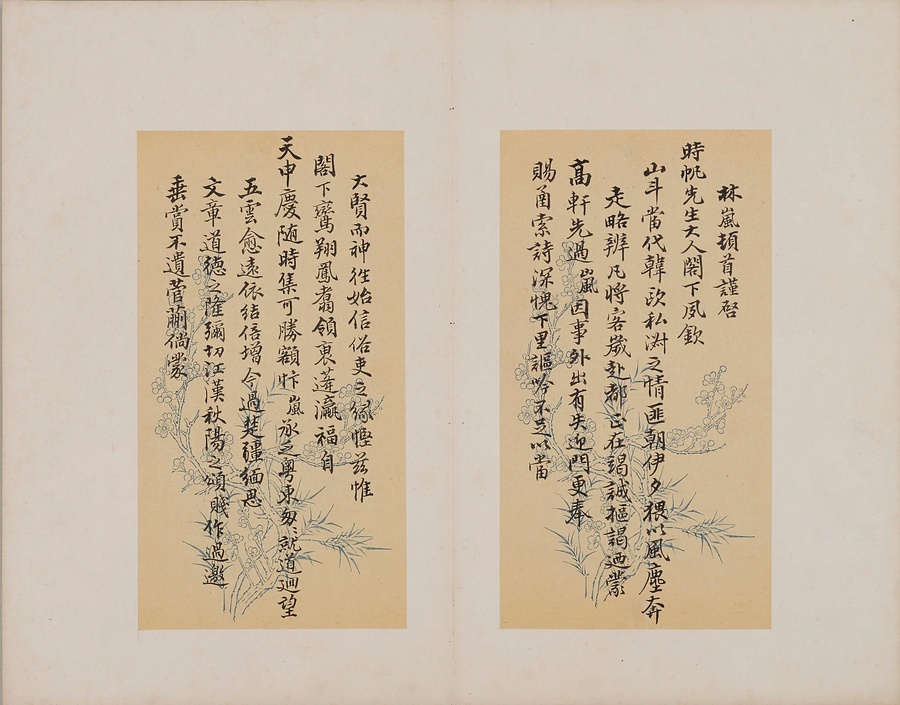 林嵐頓首謹啓
時帆先生大人閣下夙欽
山斗當代韓歐私淑之情匪朝伊夕猥以風塵奔
走略辨凡將客歲赴都正在竭誠摳謁迺蒙
高軒先過嵐因事外出有失迎門更奉
賜函索詩深愧下里謳吟不足以當
大賢而神往始信俗吏之緣慳茲惟
閣下鸞翔鳳翥領裏蓬瀛福自
天申慶随時集可勝額忭嵐承乏粤東匆匆就道迴望
五雲愈遠依結倍增今過楚疆緬思
文章道德之隆彌切江漢秋陽之頌賤作過邀
垂賞不遺菅蒯倘蒙